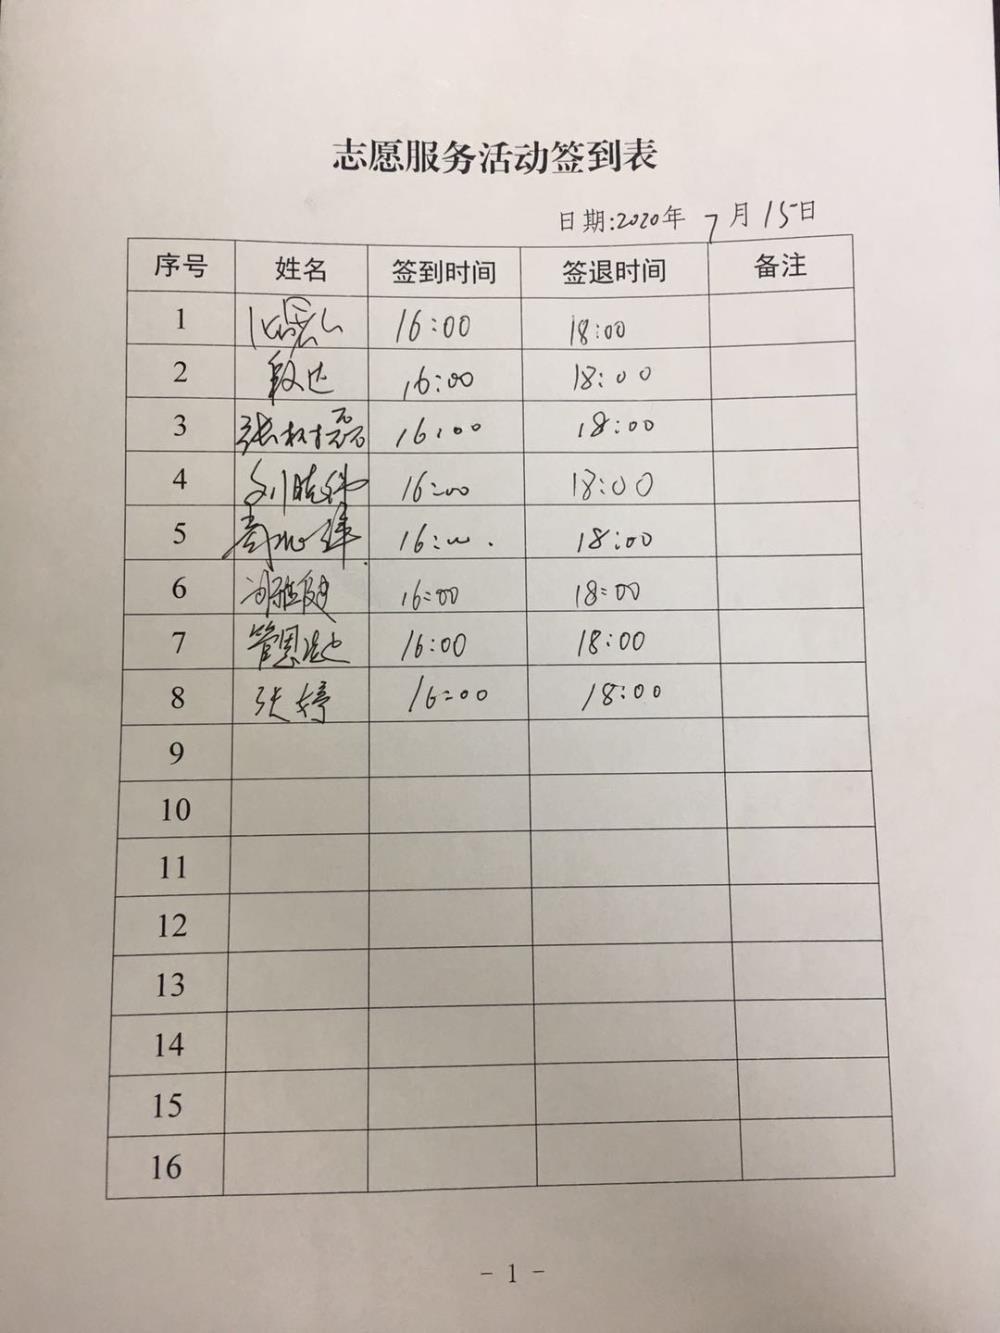 志愿服务活动签到表
日期:2020年7月15日
序号 姓名 签到时间 签退时间 备注
1 16:00 18:00
2 段达 16:00 18:00
3 张树磊 16:00 18:00
4 刘晓伟 16:00 18:00
5 16:00 18:00
6 16:00 18:00
7 管恩 16:00 18:00
8 张婷 16:00 18:00
9
10
11
12
13
14
15
16
- 1 -